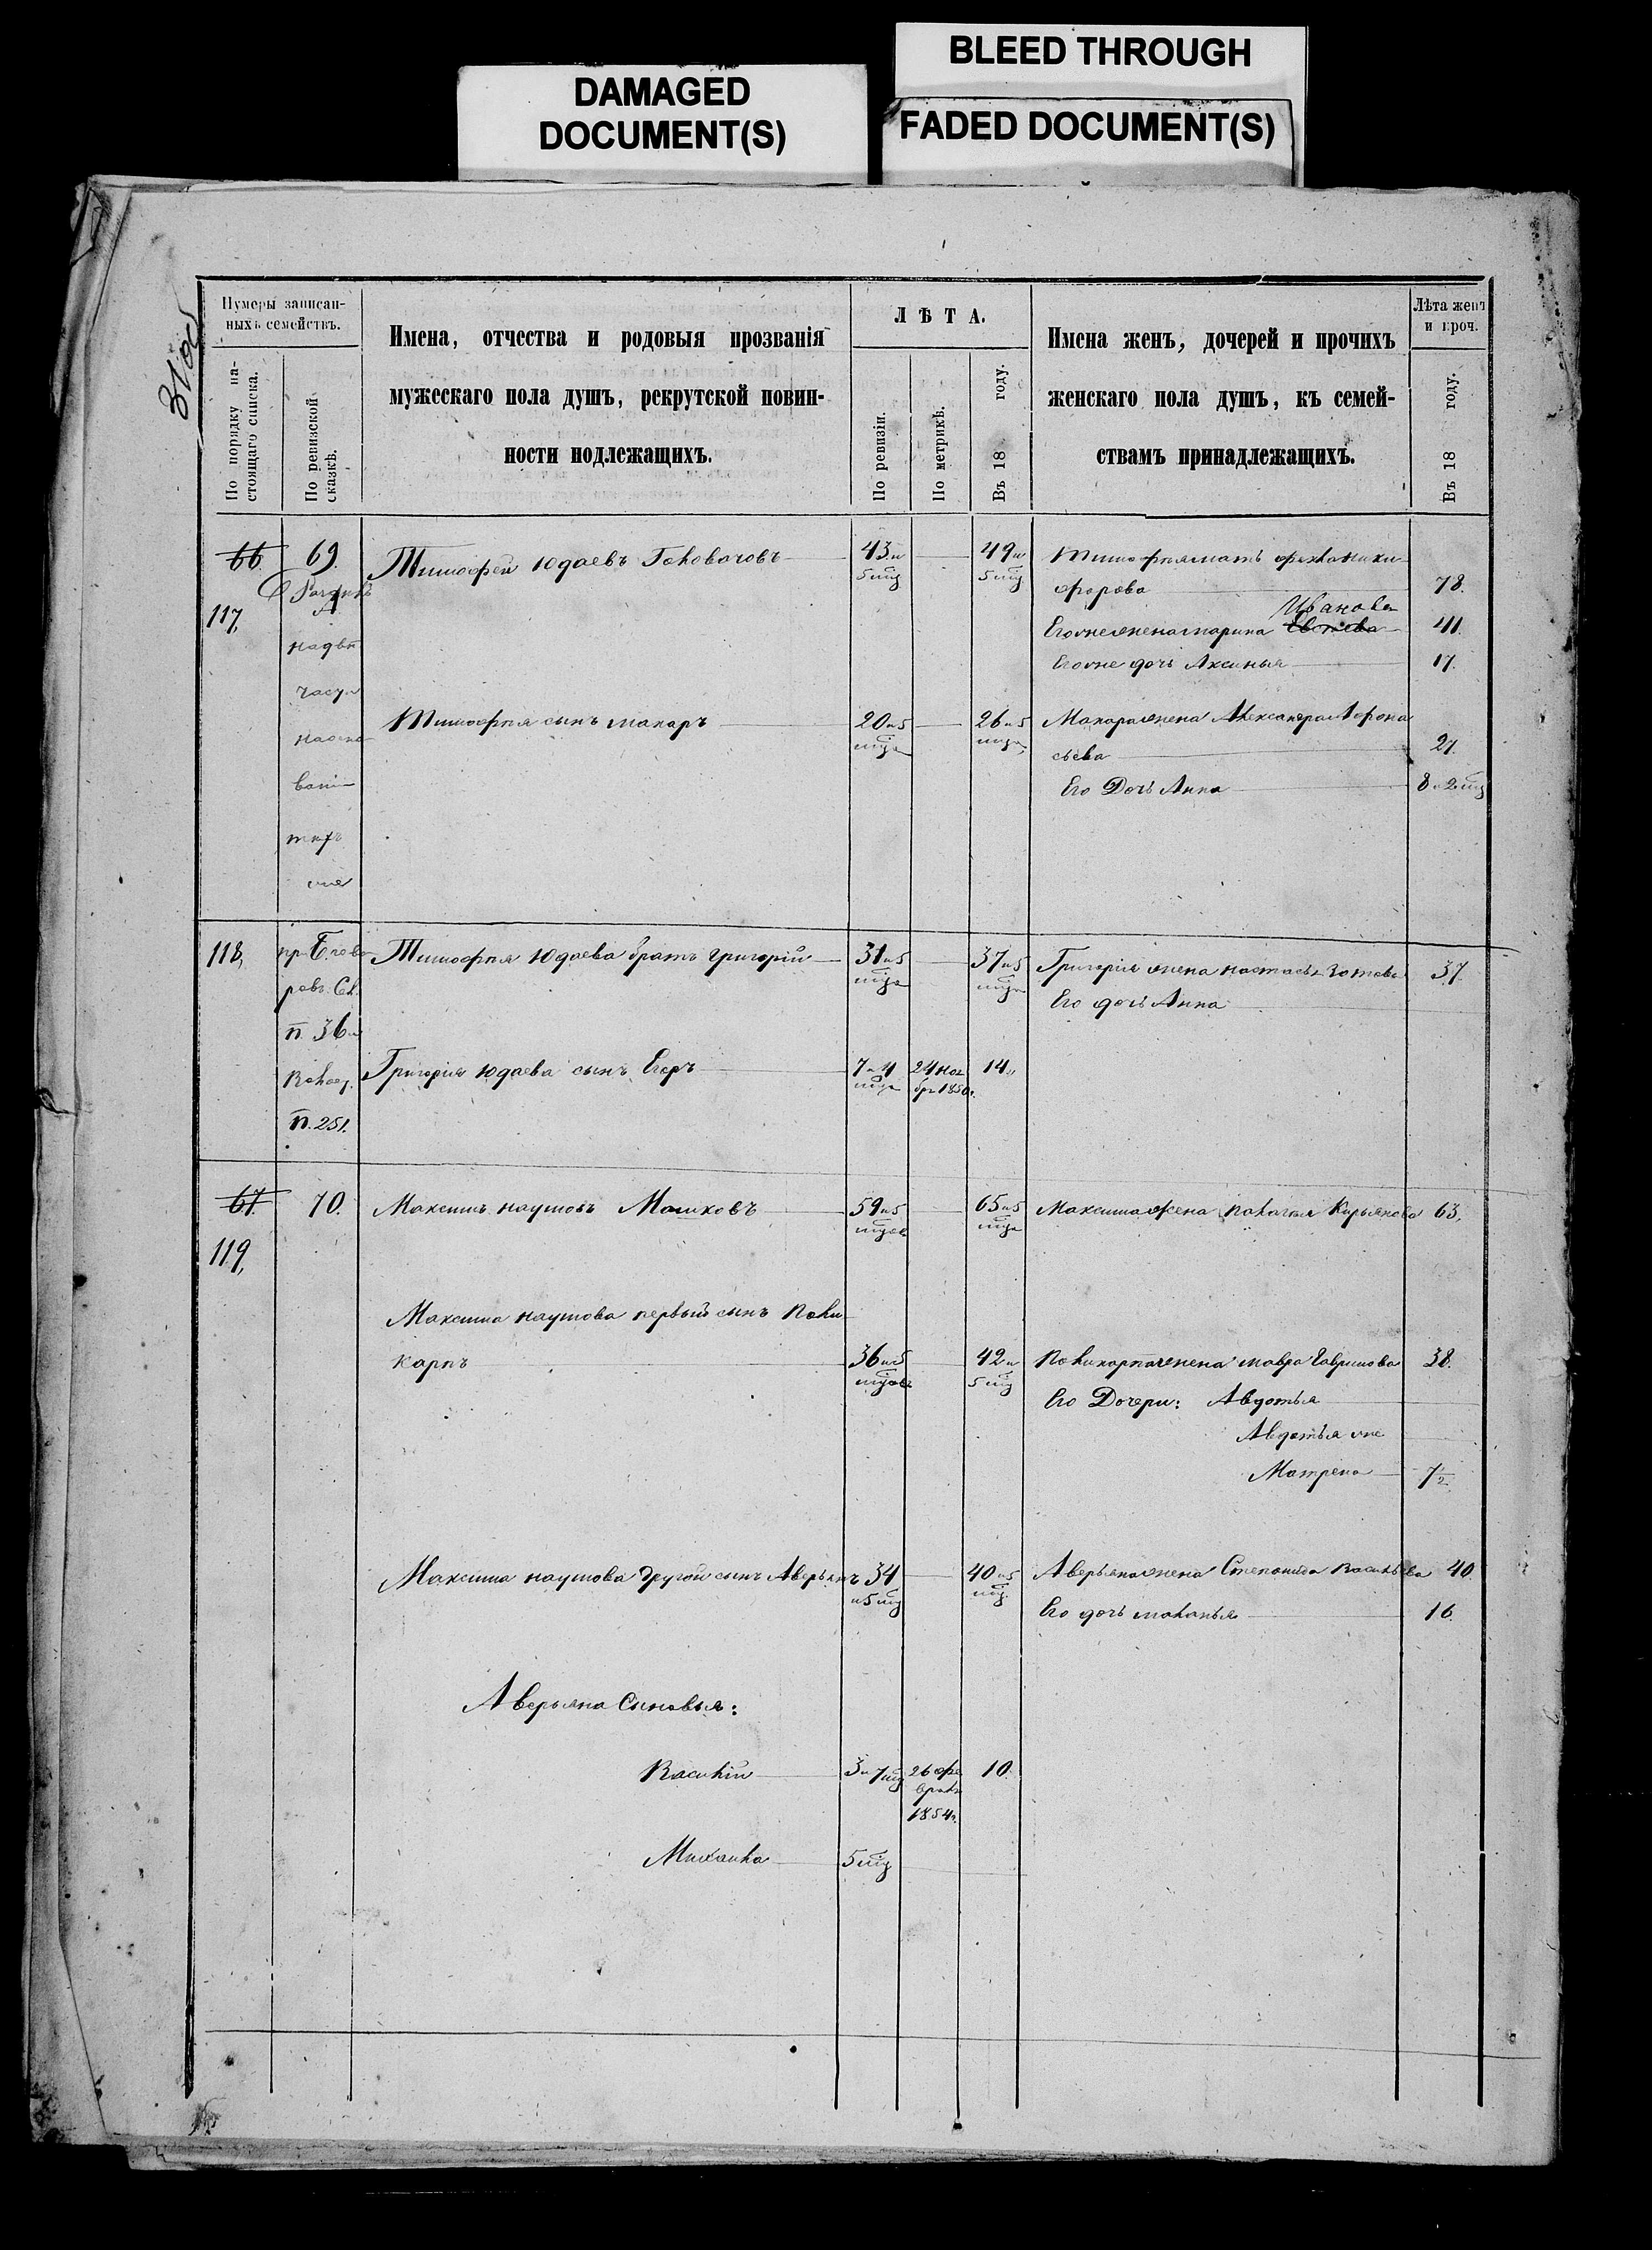 DAMAGED
DOCUMENT(S)
BLEED THROUGH
FADED DOCUMENT(S)
Нумеры записан-
ныхъ семействъ.
По порядку на-
стоящаго списка.
По ревизской
сказкѣ.
Имена, отчества и родовыя прозванія
мужескаго пола душъ, рекрутской повин-
ности подлежащихъ.
ЛѢТА.
По ревизіи.
По метрикѣ.
Въ 18 году.
Имена женъ, дочерей и прочихъ
женскаго пола душъ, къ семей-
ствамъ принадлежащихъ.
Лѣта женъ
и проч.
Въ 18 году.
66. 69. Тимофей Юдаевъ 43 и 49 и
5 мц 5 мц
Тимофея мать Ники-
форова 78.
117, Ивановa
Его же жена Марина 41.
Его же дочь Аксинья 17.
Тимофея сынъ Макаръ 20 и 5 26 и 5
Макара жена Александра Афона
сьева 27.
Его Дочь Анна 8 и 2 мц
118, Тимофея Юдаева братъ Григорій 31 и 5 37 и 5 Григорія жена Настасья Зотова 37.
Его дочь Анна
п. 36
Григорія Юдаева сынъ Егоръ 7 и 4 24 ноя 14
бря 1850 г.
п. 251.
67. 70. Максимъ Наумовъ Машковъ 59 и 5 65 и 5 Максима жена Палагея Кирьянова 63,
119,
Максима Наумова первый сынъ Поли
карпъ 36 и 5 42 и Поликарпа жена Мавра Гаврилова 38.
5 мц
Его Дочери: Авдотья
Авдотья же
Матрена 7½
Максима Наумова другой сынъ Аверьянъ 34 40 и 5 Аверьяна жена Степанида Васильева 40.
и 5 мц
Его дочь Маланья 16.
Аверьяна Сыновья:
Василій 3 и 7 мц 26 фе 10.
враля
1854 г.
Михаила 5 мц